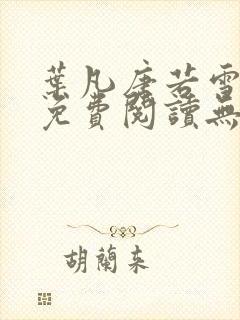 葉凡唐若雪
免費閱讀無
胡蘭来